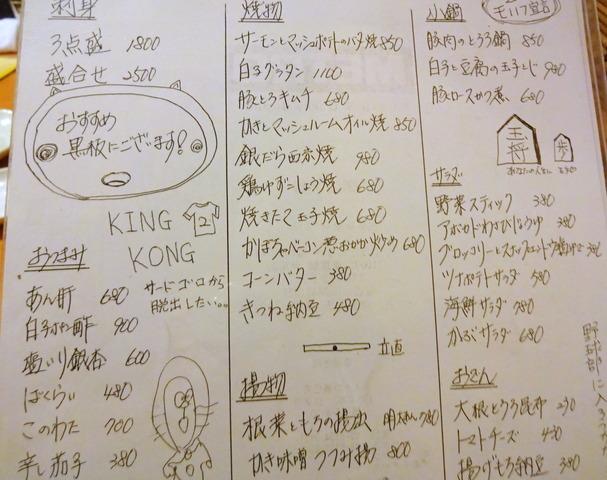 刺身
3点盛 1800
盛合せ 2500
おすすめ
黒板にございます!
KING
2
KONG
サードゴロから
脱出したい。。
おつまみ
あん肝 680
白子ポン酢 900
塩いり銀杏 600
ばくらい 480
このわた 700
辛し茄子 380
焼物
サーモンとマッシュポテトのバター焼 850
白子グラタン 1100
豚とろキムチ 680
かきとマッシュルームオイル焼 850
銀だら西京焼 980
鶏ゆずこしょう焼 680
焼きたて玉子焼 680
かぼちゃベーコン 680
コーンバター 380
きつね納豆 480
立直
揚物
根菜ともちの揚出 780
かき味噌つつみ揚 800
小鍋
豚肉のとろろ鍋 850
白子と豆腐の玉子とじ 980
豚ロースかつ煮 680
王将
歩
あなたの人生に
サラダ
野菜スティック 380
アボカドわさびじょうゆ 380
ブロッコリーと 380
ツナポテトサラダ 580
海鮮サラダ 780
かぶサラダ 680
野球部に入
おでん
大根ととろろ昆布 230
トマトチーズ 430
揚げもち納豆 380